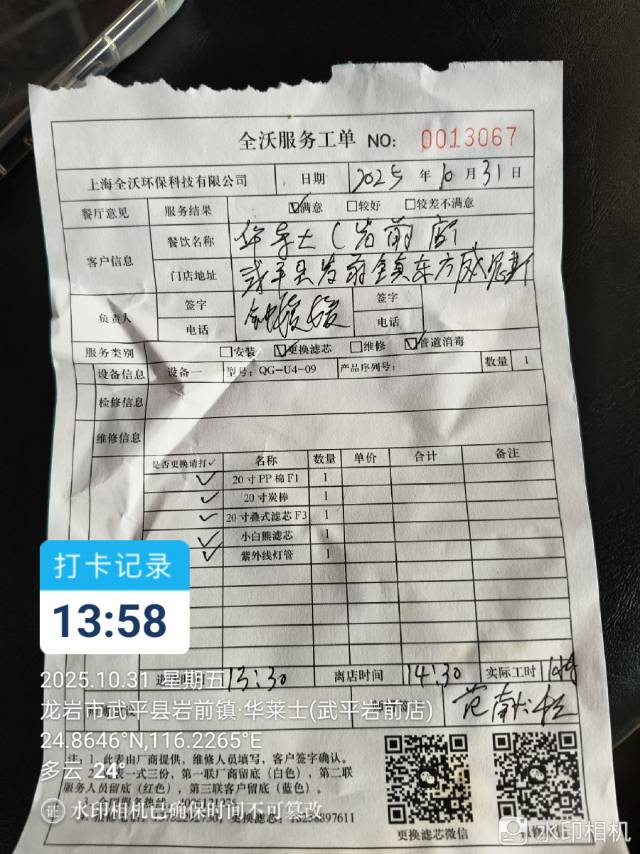 全沃服务工单 NO: 0013067
上海全沃环保科技有限公司 日期 2025 年 10 月 31 日
餐厅意见 服务结果 ☑满意 □较好 □较差不满意
客户信息 餐饮名称 华莱士(岩前店
门店地址 武平县岩前镇东方威尼斯
负责人 签字 签字
电话 电话
服务类别 □安装 ☑更换滤芯 □维修 ☑管道消毒
设备信息 设备一 型号: QG-U4-09 产品序列号: 数量 1
检修信息
维修信息
是否更换请打✓ 名称 数量 单价 合计 备注
✓ 20寸PP棉F1 1
✓ 20寸炭棒 1
✓ 20寸叠式滤芯F3 1
✓ 小白熊滤芯 1
✓ 紫外线灯管 1
打卡记录
13:58
13:30 离店时间 14:30 实际工时
2025.10.31 星期五
龙岩市武平县岩前镇·华莱士(武平岩前店)
24.8646°N,116.2265°E
多云 24°
注: 1.此表由厂商提供,维修人员填写,客户签字确认。
一式三份,第一联厂商留底(白色),第二联
服务人员留底(红色),第三联客户留底(蓝色)。
水印相机已确保时间不可篡改
更换滤芯:
更换滤芯微信
水印相机